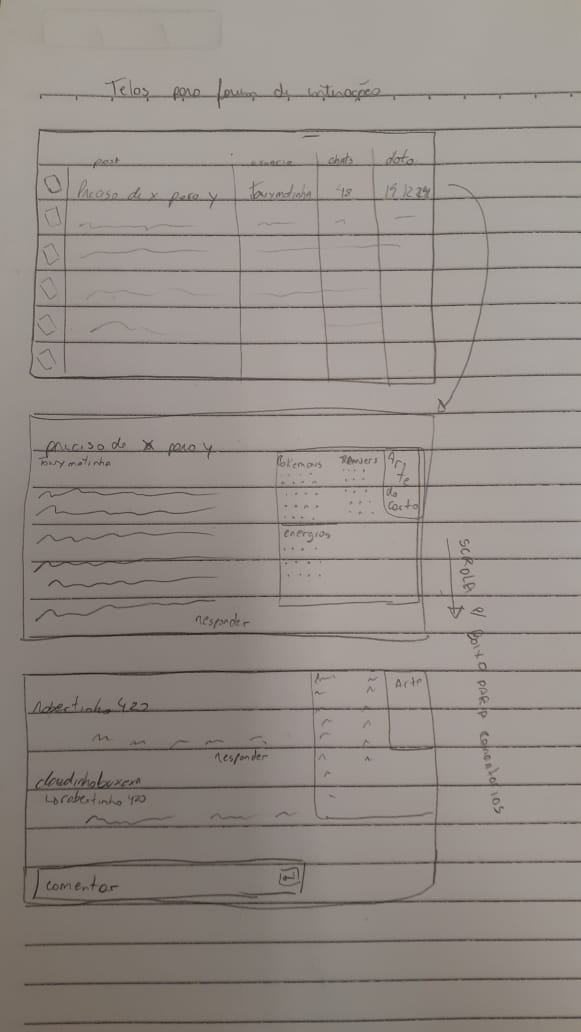 Telas para forum de interação
post usuario chats data
Preciso de x para y Tauymatinha 48 19/12/24
preciso de x para y
Tauymatinha
Pokemons Trainers Arte da carta
energias
responder
SCROLA P/ BAIXO PARA comentarios
robertinho 420
Arte
responder
claudinhobuxexa
↳ robertinho 420
comentar